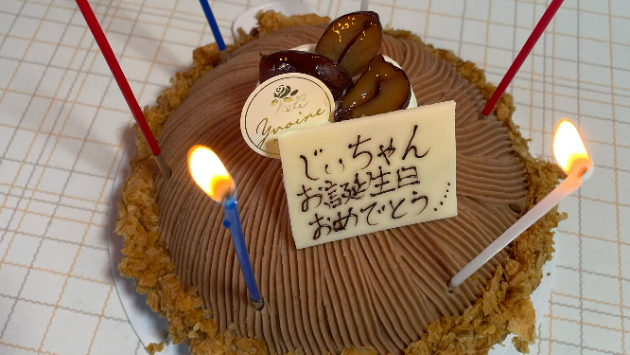 Yvoine
じぃちゃん
お誕生日
おめでとう....